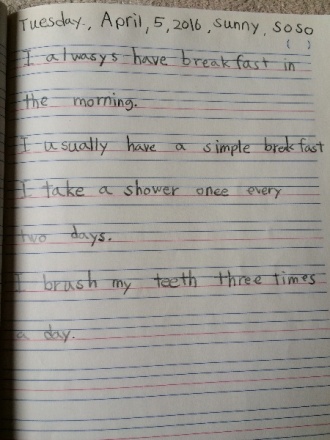 Tuesday., April, 5, 2016, sunny, soso
( )
I alwasys have breakfast in
the morning.
I usually have a simple brekfast
I take a shower once every
two days.
I brush my teeth three times
a day.